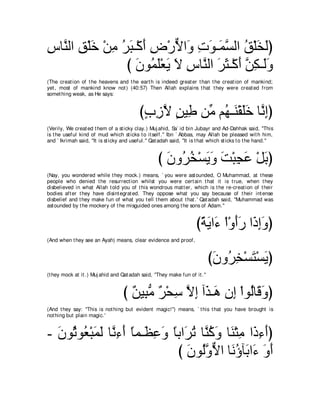 (لَخَلْقُ السَّمَـوَتِ وَالاٌّرْضِ أَكْـبَرُ مِنْ خَلْقِ النَّاسِ
وَلَـكِنَّ أَكْـثَرَ النَّاسِ لاَ يَعْلَمُونَ )
(The creation of the heavens and the earth is indeed greater than the creation of mankind; yet, most of mankind know not) (40:57) Then Allah explains that they were created from something weak, as He says:
(إِنَّا خَلَقْنَـهُم مِّن طِينٍ لاَّزِبٍ)
(Verily, We created them of a sticky clay.) Mujahid, Sa`id bin Jubayr and Ad-Dahhak said, "This is the useful kind of mud which sticks to itself." Ibn `Abbas, may Allah be pleased with him, and `Ikrimah said, "It is sticky and useful." Qatadah said, "It is that which sticks to the hand."
(بَلْ عَجِبْتَ وَيَسْخُرُونَ )
(Nay, you wondered while they mock.) means, `you were astounded, O Muhammad, at these people who denied the resurrection whilst you were certain that it is true, when they disbelieved in what Allah told you of this wondrous matter, which is the re-creation of their bodies after they have disintegrated. They oppose what you say because of their intense disbelief and they make fun of what you tell them about that.' Qatadah said, "Muhammad was astounded by the mockery of the misguided ones among the sons of Adam."
(وَإِذَا رَأَوْاْ ءَايَةً)
(And when they see an Ayah) means, clear evidence and proof,
(يَسْتَسْخِرُونَ)
(they mock at it.) Mujahid and Qatadah said, "They make fun of it."
(وَقَالُواْ إِن هَـذَآ إِلاَّ سِحْرٌ مُّبِينٌ )
(And they say: "This is nothing but evident magic!") means, `this that you have brought is nothing but plain magic.'
(أَءِذَا مِتْنَا وَكُنَّا تُرَاباً وَعِظَـماً أَءِنَّا لَمَبْعُوثُونَ -
أَوَ ءَابَآؤُنَا الاٌّوَّلُونَ )